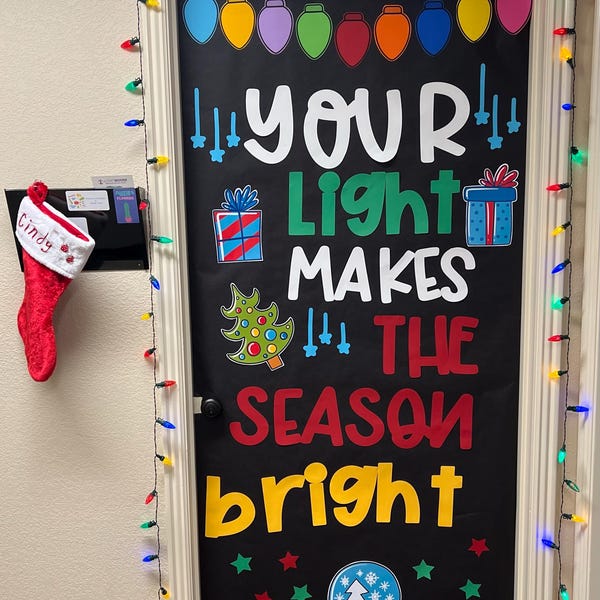 YOUR
Light
MAKES
THE
SEASON
bright
Cindy